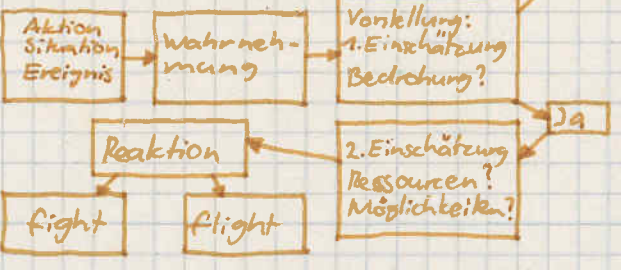 Aktion
Situation
Ereignis
Wahrneh-
mung
Vorstellung:
1. Einschätzung
Bedrohung?
Ja
2. Einschätzung
Ressourcen?
Möglichkeiten?
Reaktion
fight
flight